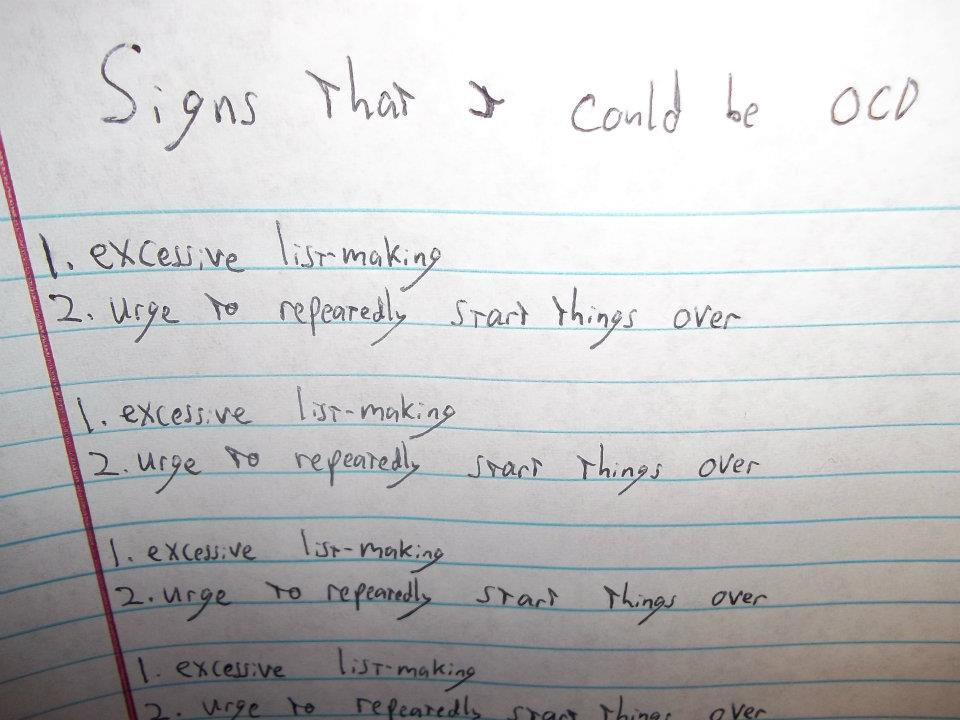 Signs that I could be OCD
1. excessive list-making
2. urge to repeatedly start things over
1. excessive list-making
2. urge to repeatedly start things over
1. excessive list-making
2. urge to repeatedly start things over
1. excessive list-making
2. urge to repeatedly start things over